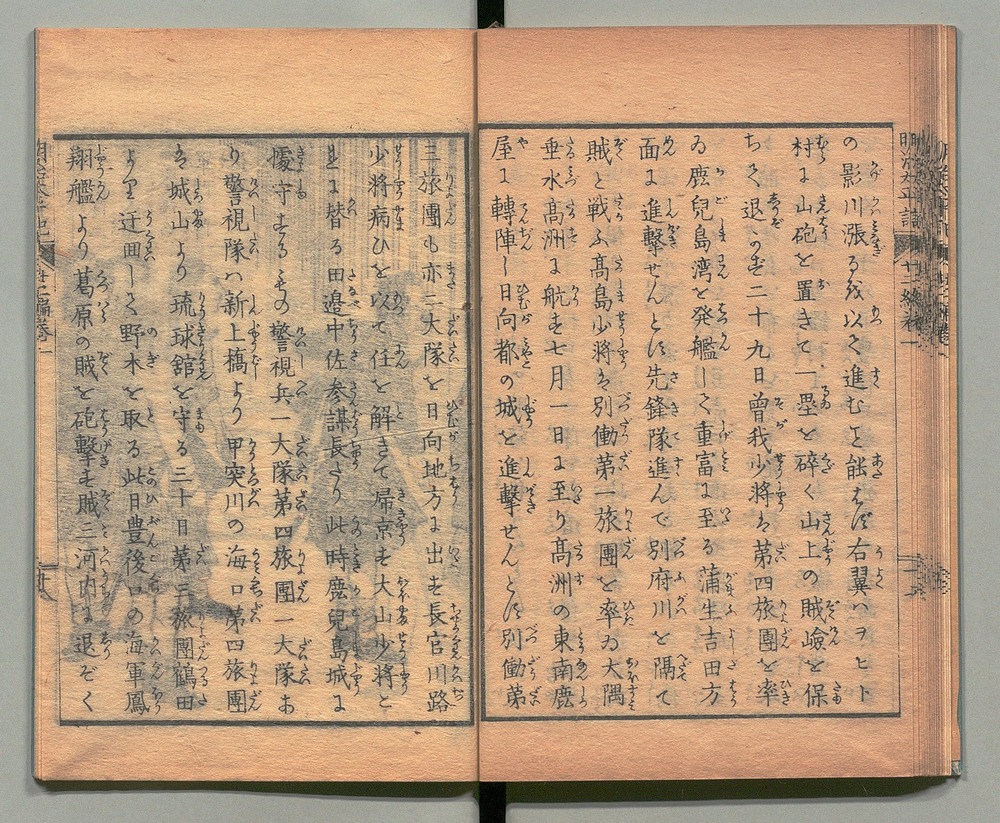 の影川漲る。を以て進むと能はず右翼ハヲヒト
村に山砲を置きて一塁を碎く山上の賊嶮を保
ちて退のき二十九日曾我少将ハ第四旅團を率
ゐ鹿兒島湾を発艦して重富に至る蒲生吉田方
面に進撃せんとに先鋒隊進んで別府川を隔て
賊と戦ふ髙島少将ハ別働第一旅團を率ゐ大隅
垂水髙洲に航き七月一日に至り髙洲の東南鹿
屋に轉陣し日向都の城を進撃せんとに別働第
三旅團も亦二大隊を日向地方に出き長官川路
少将病ひを以て任を解きて帰京き大山少将と
に替る田邉中佐参謀長たり此時鹿兒島城に
守するもの警視兵一大隊第四旅團一大隊あ
り警視隊ハ新上橋より甲突川の海口第四旅團
ハ城山より琉球舘を守る三十日第三旅團鶴田
より迂回して野木を取る此日豊後口の海軍鳳
翔艦より葛原の賊を砲撃き賊三河内に退ぞく